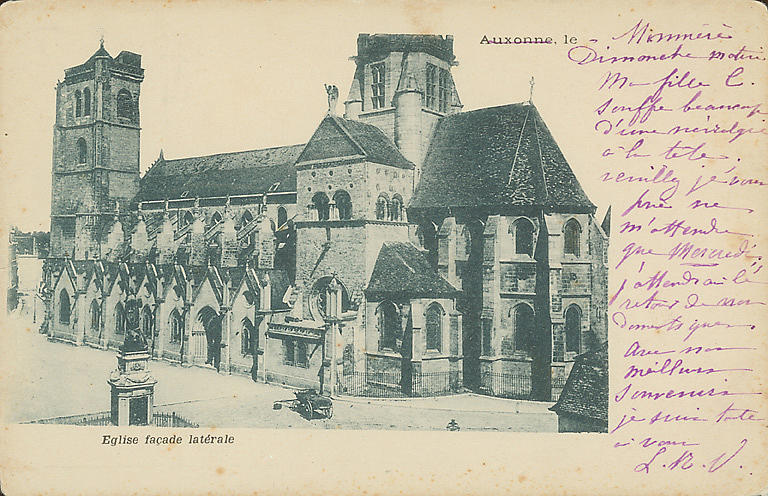 Auxonne, le
Monnières
Dimanche matin
Ma fille C.
souffre beaucoup
d'une névralgie
à la tete.
veuillez je vous
prie ne
m'attendre
que Mercredi.
j'attendrai le
retour de nos
domestiques
Avec nos
meilleurs
souvenirs
je suis toute
à vous
L. R. V.
Eglise façade latérale